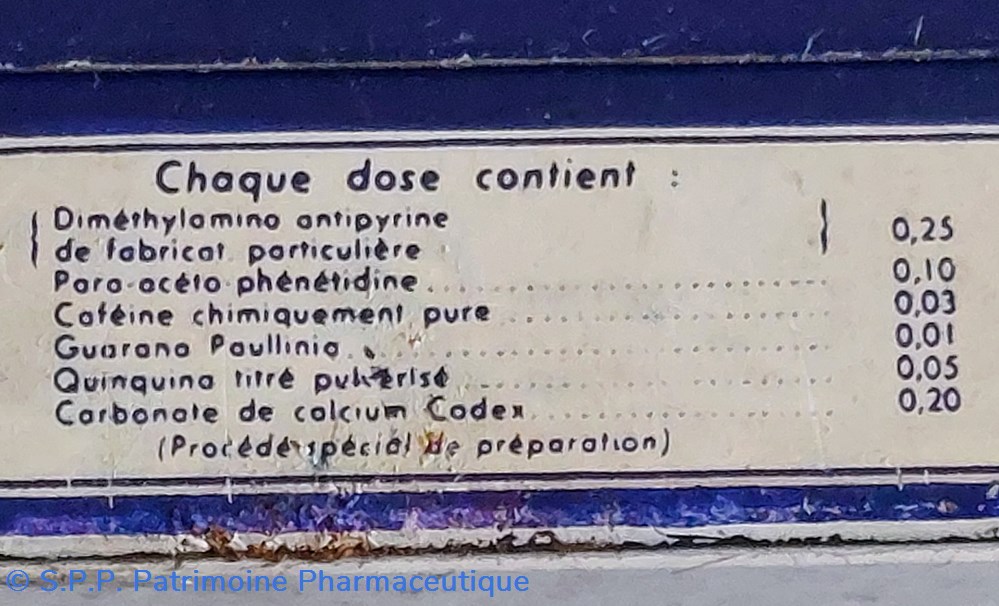 Chaque dose contient :
Diméthylamino antipyrine
de fabricat. particulière 0,25
Para-acéto-phénétidine 0,10
Caféine chimiquement pure 0,03
Guarana Paullinia 0,01
Quinquina titré pulvérisé 0,05
Carbonate de calcium Codex 0,20
(Procédé spécial de préparation)
© S.P.P. Patrimoine Pharmaceutique